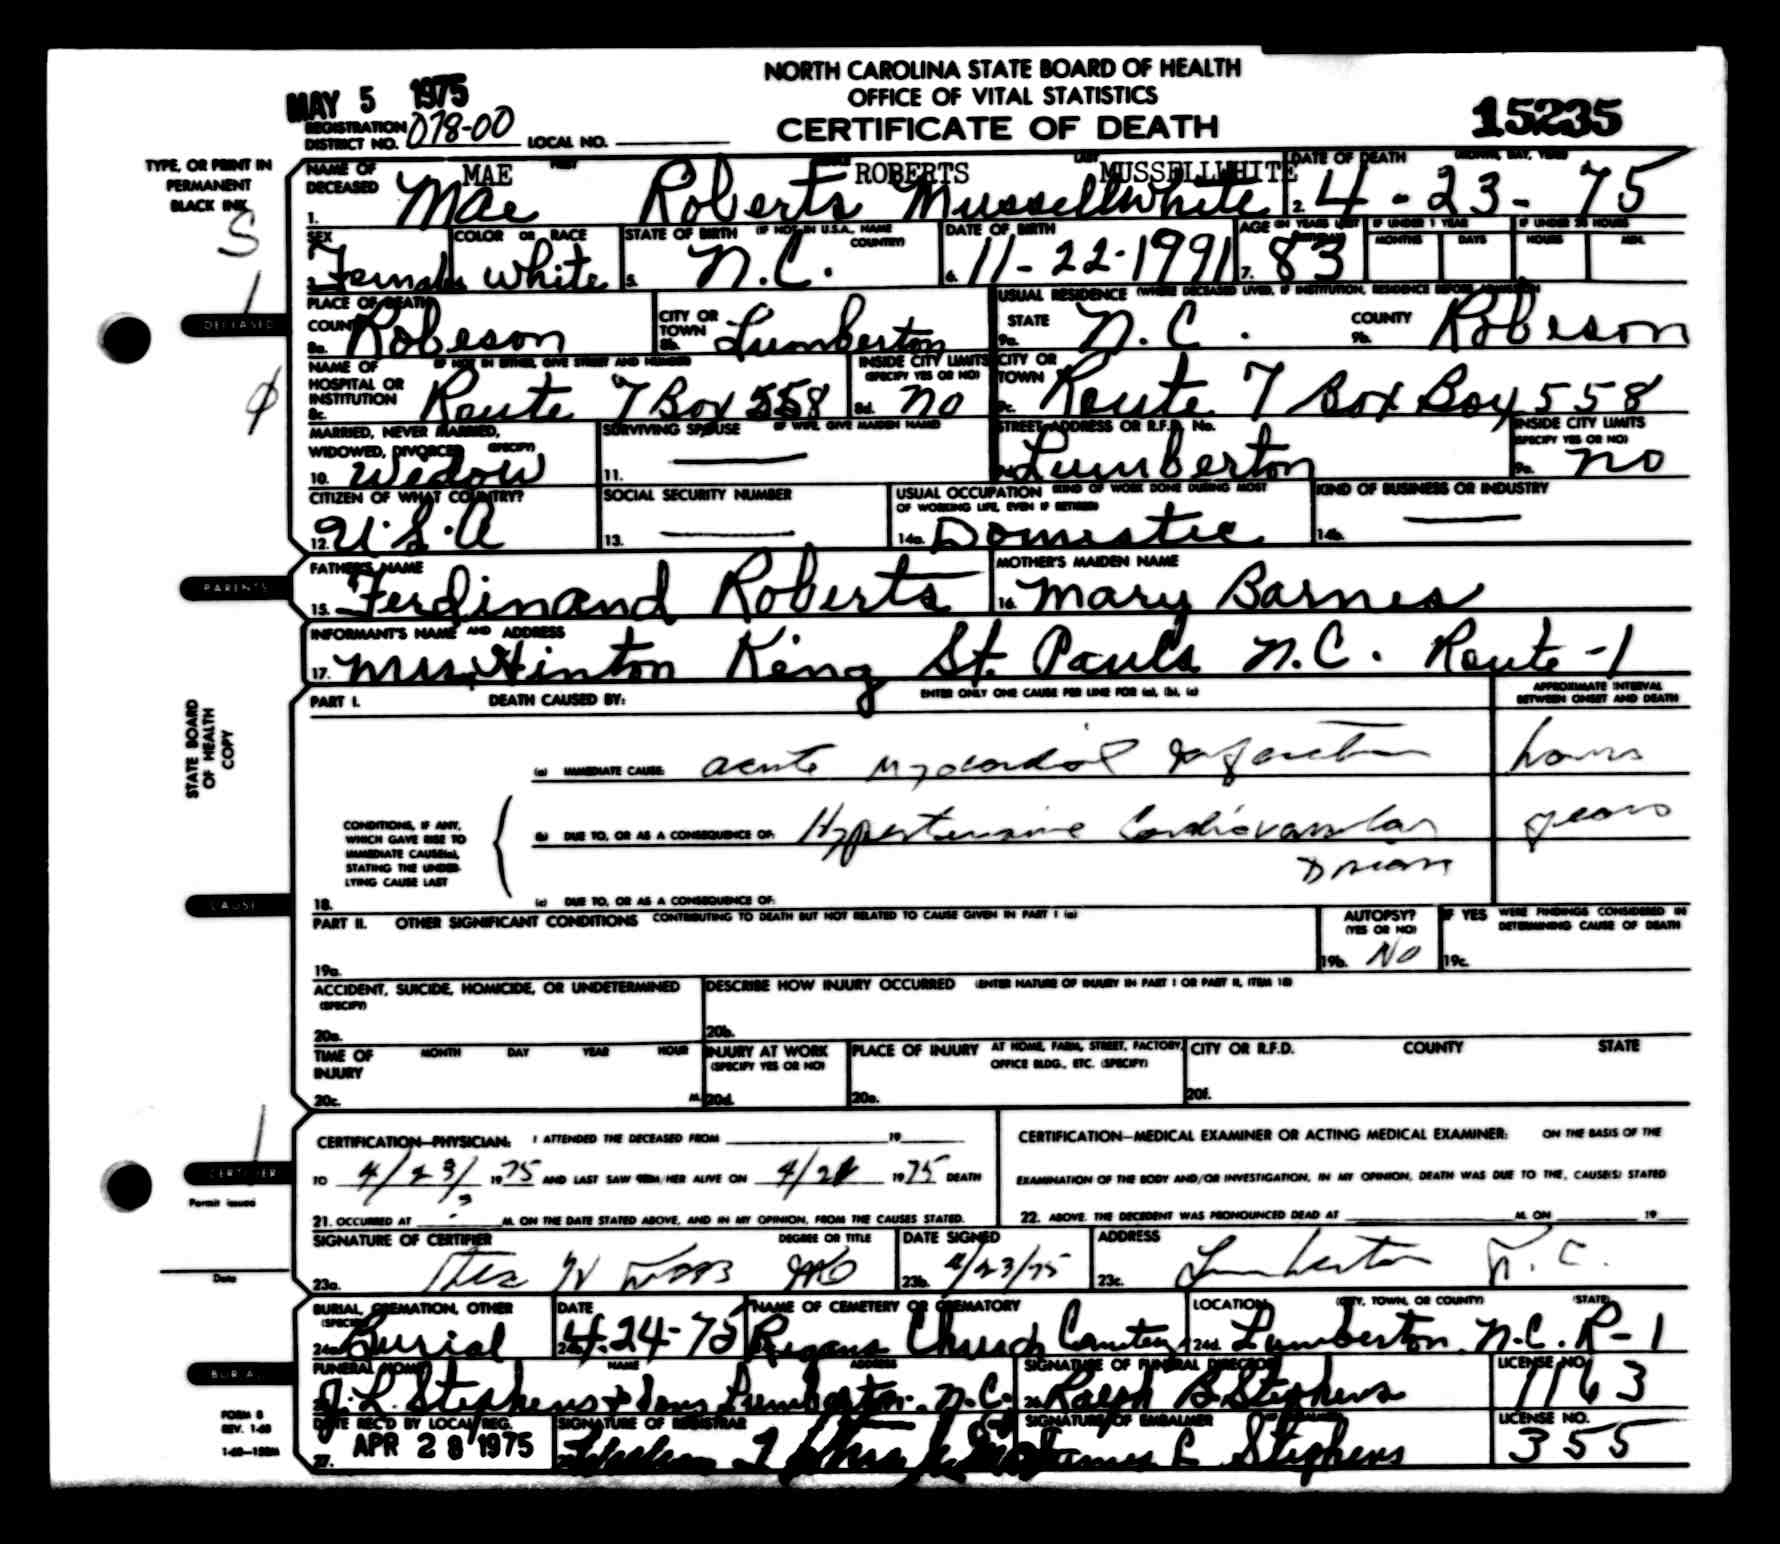 NORTH CAROLINA STATE BOARD OF HEALTH
OFFICE OF VITAL STATISTICS
CERTIFICATE OF DEATH
MAY 5 1975
15235
REGISTRATION DISTRICT NO. 078-00 LOCAL NO.
TYPE, OR PRINT IN
PERMANENT
BLACK INK
S
NAME OF DECEASED FIRST MIDDLE LAST DATE OF DEATH (MONTH, DAY, YEAR)
MAE ROBERTS MUSSELLWHITE
1. Mae Roberts Mussellwhite 2. 4-23-75
SEX COLOR OR RACE STATE OF BIRTH (IF NOT IN U.S.A., NAME COUNTRY) DATE OF BIRTH AGE (IN YEARS LAST BIRTHDAY) IF UNDER 1 YEAR IF UNDER 24 HOURS
MONTHS DAYS HOURS MIN.
3. Female White 5. N.C. 6. 11-22-1991 7. 83
DECEASED
PLACE OF DEATH USUAL RESIDENCE (WHERE DECEASED LIVED, IF INSTITUTION, RESIDENCE BEFORE ADMISSION
8a. COUNTY Robeson 8b. CITY OR TOWN Lumberton 9a. STATE N.C. 9b. COUNTY Robeson
NAME OF HOSPITAL OR INSTITUTION (IF NOT IN EITHER, GIVE STREET AND NUMBER INSIDE CITY LIMITS (SPECIFY YES OR NO) CITY OR TOWN
8c. Route 7 Box 558 8d. no 9c. Route 7 Box Box 558
MARRIED, NEVER MARRIED, WIDOWED, DIVORCED (SPECIFY) SURVIVING SPOUSE (IF WIFE, GIVE MAIDEN NAME) STREET ADDRESS OR R.F.D. No. INSIDE CITY LIMITS (SPECIFY YES OR NO)
10. Wedow 11. — Lumberton 9e. no
CITIZEN OF WHAT COUNTRY? SOCIAL SECURITY NUMBER USUAL OCCUPATION (KIND OF WORK DONE DURING MOST OF WORKING LIFE, EVEN IF RETIRED) KIND OF BUSINESS OR INDUSTRY
12. U.S.A 13. — 14a. Domestic 14b. —
PARENTS
FATHER'S NAME MOTHER'S MAIDEN NAME
15. Ferdinand Roberts 16. Mary Barnes
INFORMANT'S NAME AND ADDRESS
17. Mrs Hinton King St. Pauls N.C. Route-1
STATE BOARD
OF HEALTH
COPY
PART I. DEATH CAUSED BY: ENTER ONLY ONE CAUSE PER LINE FOR (a), (b), (c) APPROXIMATE INTERVAL BETWEEN ONSET AND DEATH
(a) IMMEDIATE CAUSE: acute myocardial infarction hours
CONDITIONS, IF ANY,
WHICH GAVE RISE TO
IMMEDIATE CAUSE(a),
STATING THE UNDER-
LYING CAUSE LAST
(b) DUE TO, OR AS A CONSEQUENCE OF: Hypertensive Cardiovascular years
Disease
CAUSE
18. (c) DUE TO, OR AS A CONSEQUENCE OF:
PART II. OTHER SIGNIFICANT CONDITIONS CONTRIBUTING TO DEATH BUT NOT RELATED TO CAUSE GIVEN IN PART I (a) AUTOPSY? (YES OR NO) IF YES WERE FINDINGS CONSIDERED IN DETERMINING CAUSE OF DEATH
19a. 19b. No 19c.
ACCIDENT, SUICIDE, HOMICIDE, OR UNDETERMINED (SPECIFY) DESCRIBE HOW INJURY OCCURRED (ENTER NATURE OF INJURY IN PART I OR PART II, ITEM 18)
20a. 20b.
TIME OF INJURY MONTH DAY YEAR HOUR INJURY AT WORK (SPECIFY YES OR NO) PLACE OF INJURY AT HOME, FARM, STREET, FACTORY, OFFICE BLDG., ETC. (SPECIFY) CITY OR R.F.D. COUNTY STATE
20c. M. 20d. 20e. 20f.
CERTIFICATION—PHYSICIAN: I ATTENDED THE DECEASED FROM 19 CERTIFICATION—MEDICAL EXAMINER OR ACTING MEDICAL EXAMINER: ON THE BASIS OF THE
CERTIFIER
TO 4/23/ 1975 AND LAST SAW HIM/HER ALIVE ON 4/21 1975 DEATH EXAMINATION OF THE BODY AND/OR INVESTIGATION, IN MY OPINION, DEATH WAS DUE TO THE, CAUSE(S) STATED
Permit issued
21. OCCURRED AT ? M. ON THE DATE STATED ABOVE, AND IN MY OPINION, FROM THE CAUSES STATED. 22. ABOVE. THE DECEDENT WAS PRONOUNCED DEAD AT M. ON 19
SIGNATURE OF CERTIFIER DEGREE OR TITLE DATE SIGNED ADDRESS
23a. MD 23b. 4/23/75 23c. Lumberton N.C.
Date
BURIAL, CREMATION, OTHER (SPECIFY) DATE NAME OF CEMETERY OR CREMATORY LOCATION (CITY, TOWN, OR COUNTY) (STATE)
24a. Burial 24b. 4-24-75 Regans Church Cemetery 24d. Lumberton N.C. R-1
BURIAL
FUNERAL HOME NAME ADDRESS SIGNATURE OF FUNERAL DIRECTOR LICENSE NO.
J. L. Stephens & Sons Lumberton. N.C. 26. Ralph B. Stephens 1163
FORM 8
REV. 1-68
DATE REC'D BY LOCAL REG. SIGNATURE OF REGISTRAR SIGNATURE OF EMBALMER LICENSE NO.
27. APR 28 1975 James L Stephens 355